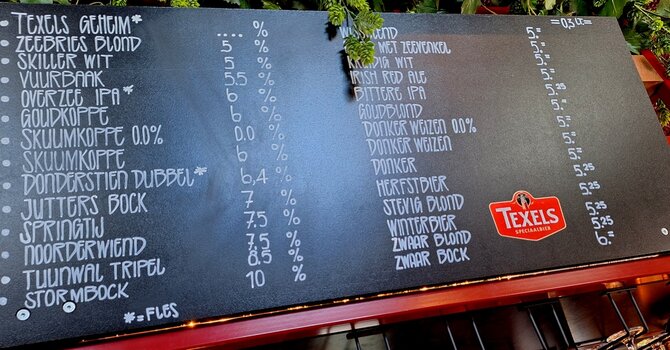 TEXELS GEHEIM* .... % 5.= =0,3 LT.=
ZEEBRIES BLOND 5 % MET ZEEVENKEL 5.=
SKILLER WIT 5 % WIT 5.=
VUURBAAK 5.5 % IRISH RED ALE 5.=
OVERZEE IPA* 6 % BITTERE IPA 5.=
GOUDKOPPE 6 % GOUDBLOND 5.=
SKUUMKOPPE 0.0% 0.0 % DONKER WEIZEN 0.0% 5.=
SKUUMKOPPE 6 % DONKER WEIZEN 5.=
DONDERSTIEN DUBBEL* 6,4 % DONKER 5.=
JUTTERS BOCK 7 % HERFSTBIER 5.25
SPRINGTIJ 7.5 % STEVIG BLOND 5.25
NOORDERWIEND 7,5 % WINTERBIER 5.25
TUUNWAL TRIPEL 8.5 % ZWAAR BLOND 5.25
STORMBOCK 10 % ZWAAR BOCK 6.=
*=FLES
TEXELS
SPECIAALBIER